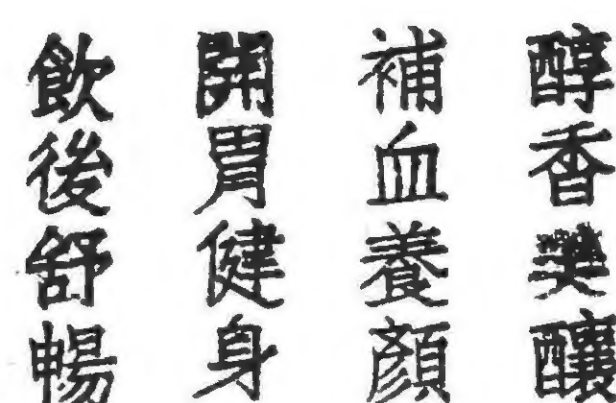 醇香美釀
補血養顏
開胃健身
飲後舒暢